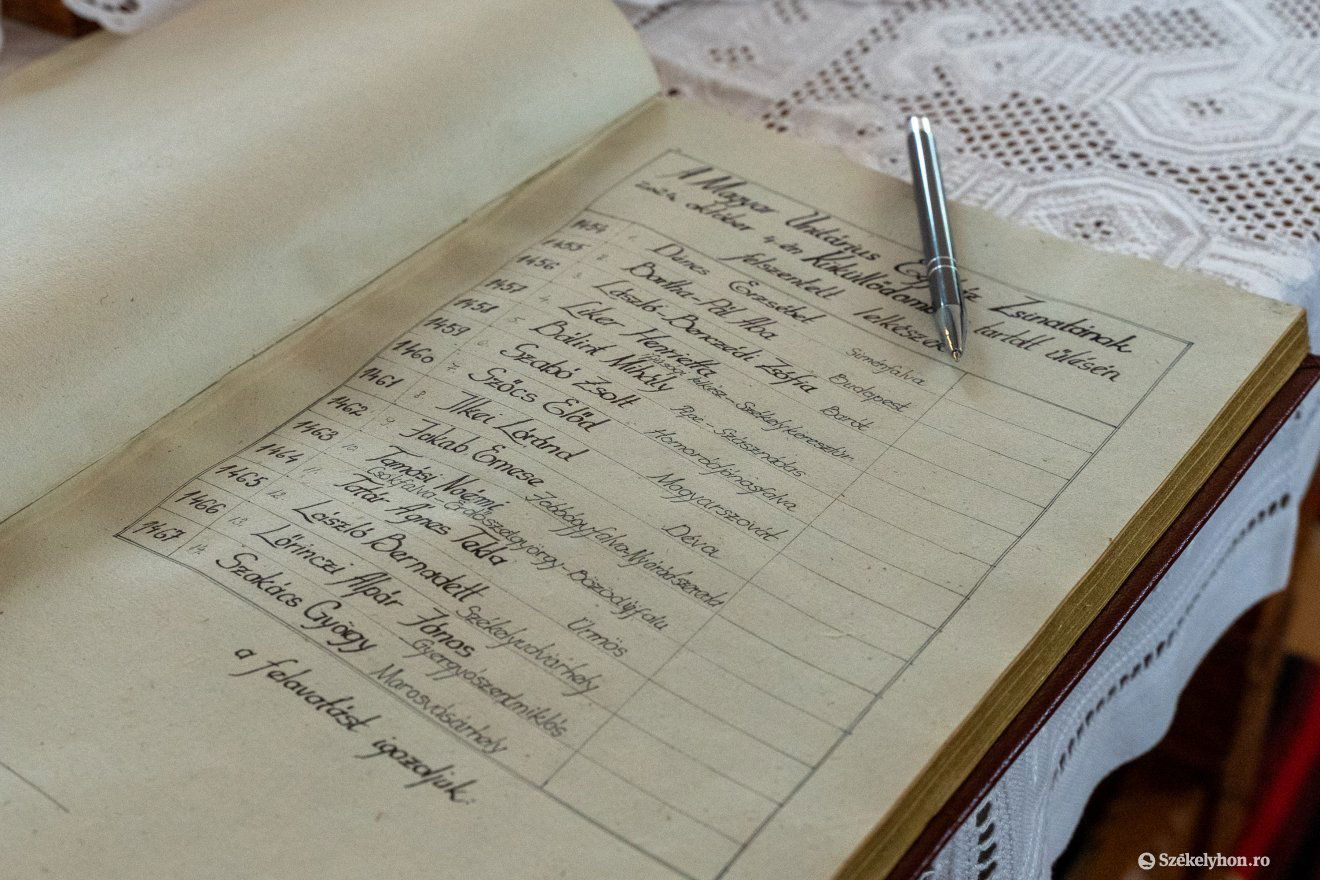 A Magyar Unitárius Egyház Zsinatának
október 4-én Küküllődombón tartott ülésén
felszentelt lelkészek
1454 1. Dénes Erzsébet Siménfalva
1455 2. Bartha-Pál Aba Budapest
1456 3. László-Benczédi Zsófia Barót
1457 4. Liker Henrietta
1458 5. Bálint Mihály
1459 6. Szabó Zsolt Homoródjánosfalva
1460 7. Szőcs Előd Magyarszovát
1461 8. Ilkei Lóránd Déva
1462 9. Jakab Emese Jobbágyfalva-Nyárádszereda
1463 10. Tamási Noémi
Csokfalva-Erdőszentgyörgy-Bözödújfalu
1464 11. Tatár Ágnes Tekla Ürmös
1465 12. László Bernadett Székelyudvarhely
1466 13. Lőrinczi Alpár János Gyergyószentmiklós
1467 14. Szakács György Marosvásárhely
a felavatást igazoljuk:
Székelyhon.ro